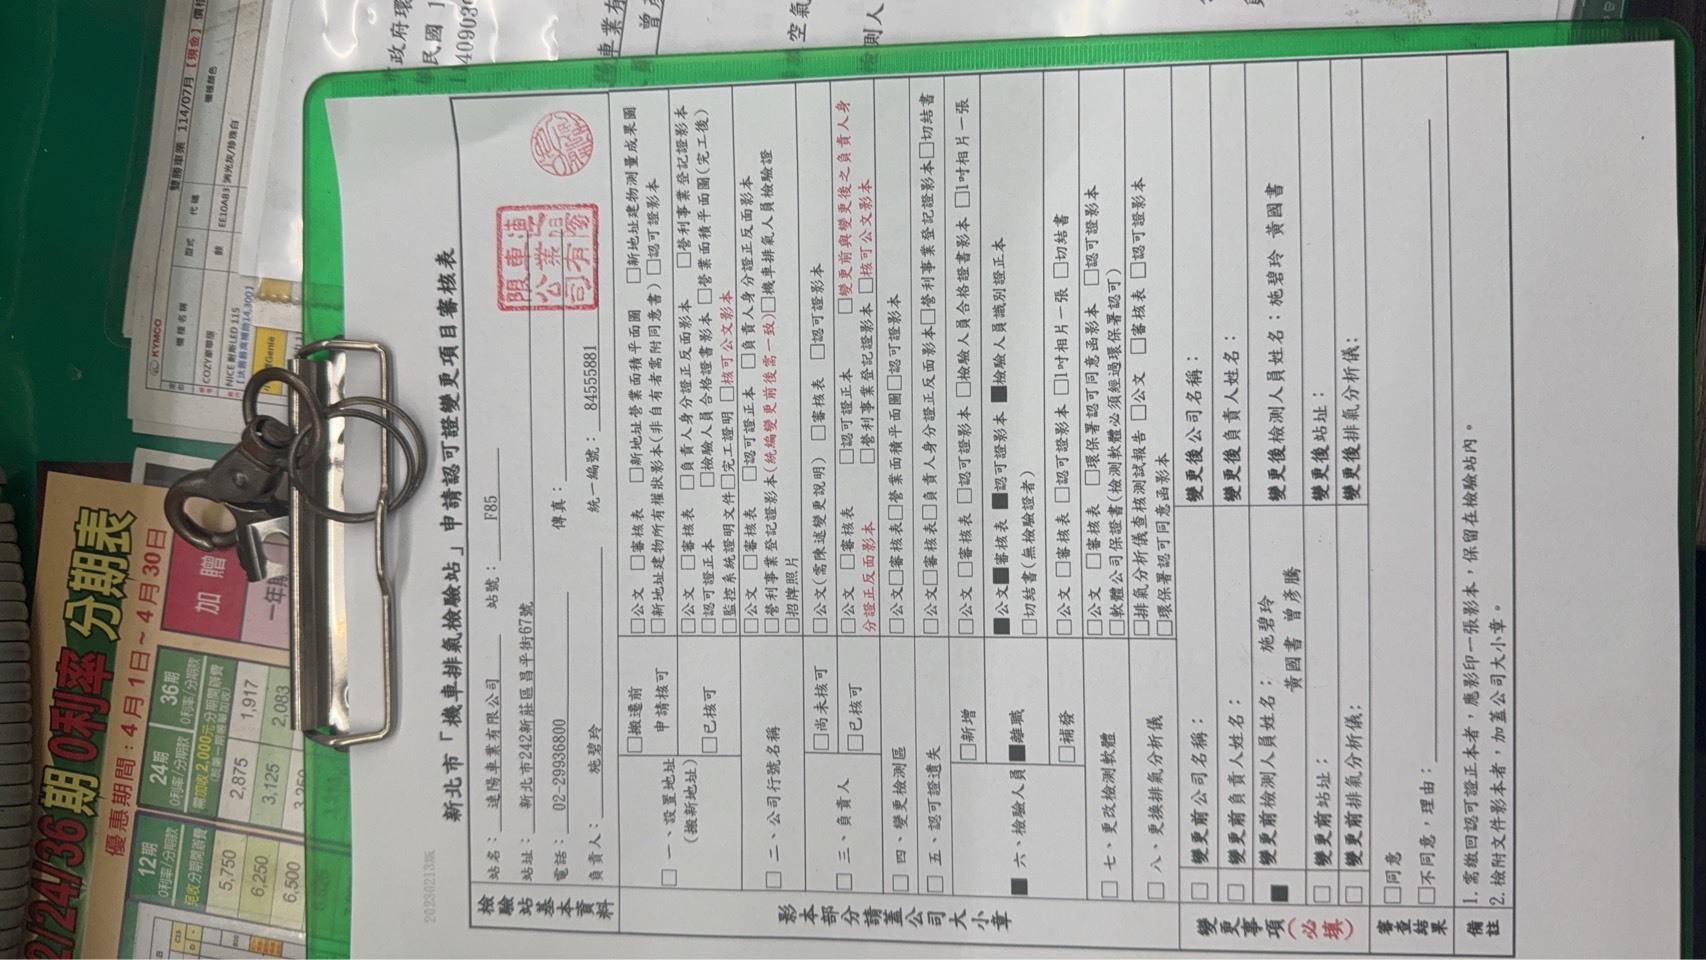 20230213版
新北市「機車排氣檢驗站」申請認可證變更項目審核表
檢驗站基本資料
站名： 連陽車業有限公司 站號： F85
站址： 新北市242新莊區昌平街67號
電話： 02-29936800 傳真：
負責人： 施碧玲 統一編號： 84555881
影本部分請蓋公司大小章
□ 一、設置地址(搬新地址)
□搬遷前申請核可
□公文 □審核表 □新地址營業面積平面圖 □新地址建物測量成果圖
□新地址建物所有權狀影本(非自有者需附同意書) □認可證影本
□已核可
□公文 □審核表 □負責人身分證正反面影本 □營利事業登記證影本
□認可證正本 □檢驗人員合格證書影本 □營業面積平面圖(完工後)
□監控系統證明文件□完工證明 □核可公文影本
□ 二、公司行號名稱
□公文 □審核表 □認可證正本 □負責人身分證正反面影本
□營利事業登記證影本(統編變更前後需一致)□機車排氣人員檢驗證
□招牌照片
□ 三、負責人
□尚未核可
□公文(需陳述變更說明) □審核表 □認可證影本
□已核可
□公文 □審核表 □認可證正本 □變更前與變更後之負責人身
分證正反面影本 □營利事業登記證影本 □核可公文影本
□ 四、變更檢測區
□公文□審核表□營業面積平面圖□認可證影本
□ 五、認可證遺失
□公文□審核表□負責人身分證正反面影本□營利事業登記證影本□切結書
■ 六、檢驗人員
□新增
□公文 □審核表 □認可證影本 □檢驗人員合格證書影本 □1吋相片一張
■離職
■公文■審核表 ■認可證影本 ■檢驗人員識別證正本
□切結書(無檢驗證者)
□補發
□公文 □審核表 □認可證影本 □1吋相片一張 □切結書
□ 七、更改檢測軟體
□公文 □審核表 □環保署認可同意函影本 □認可證影本
□軟體公司保證書(檢測軟體必須經過環保署認可)
□ 八、更換排氣分析儀
□排氣分析儀查核測試報告 □公文 □審核表 □認可證影本
□環保署認可同意函影本
變更事項(必填)
□ 變更前公司名稱： 變更後公司名稱：
□ 變更前負責人姓名： 變更後負責人姓名：
■ 變更前檢測人員姓名： 施碧玲 黃國書 曾彥騰 變更後檢測人員姓名：施碧玲 黃國書
□ 變更前站址： 變更後站址：
□ 變更前排氣分析儀: 變更後排氣分析儀:
審查結果
□同意
□不同意，理由：
備註
1.需繳回認可證正本者，應影印一張影本，保留在檢驗站內。
2.檢附文件影本者，加蓋公司大小章。
2/24/36期 0利率 分期表
優惠期間：4月1日~4月30日
12期 24期 36期
0利率/分期款 0利率/分期款 0利率/分期款
5,750 2,875 1,917
6,250 3,125 2,083
6,500
加贈
KYMCO
雙勝車業 114/07月【現金】
機種名稱 型式 代碼 機種顏色
EE10A83
NICE